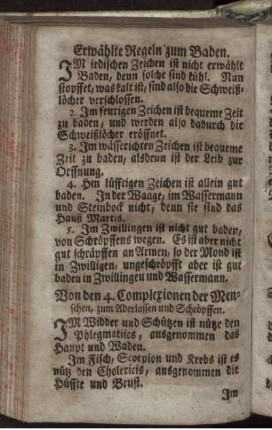 Erwählte Regeln zum Baden.
IM irdischen Zeichen ist nicht erwählt
Baden, denn solche sind kühl. Nun
stopffet, was kalt ist, sind also die Schweiß-
löcher verschlossen.
2. Im feurigen Zeichen ist bequeme Zeit
zu baden, und werden also dadurch die
Schweißlöcher eröffnet.
3. Im wässerichten Zeichen ist bequeme
Zeit zu baden, alsdenn ist der Leib zur
Oeffnung.
4. Im lüfftigen Zeichen ist allein gut
baden. In der Waage, im Wassermann
und Steinbock nicht, denn sie sind das
Hauß Martis.
5. Im Zwillingen ist nicht gut baden,
von Schröpffens wegen. Es ist aber nicht
gut schräpffen an Armen, so der Mond ist
in Zwilligen, ungeschröpfft aber ist gut
baden in Zwillingen und Wassermann.
Von den 4. Complexionen der Men-
schen, zum Aderlassen und Schröpffen.
IM Widder und Schützen ist nütze den
Phlegmatiics, ausgenommen das
Haupt und Waden.
Im Fisch, Scorpion und Krebs ist es
nütz den Cholericis, ausgenommen die
Hüffte und Brust.
Im